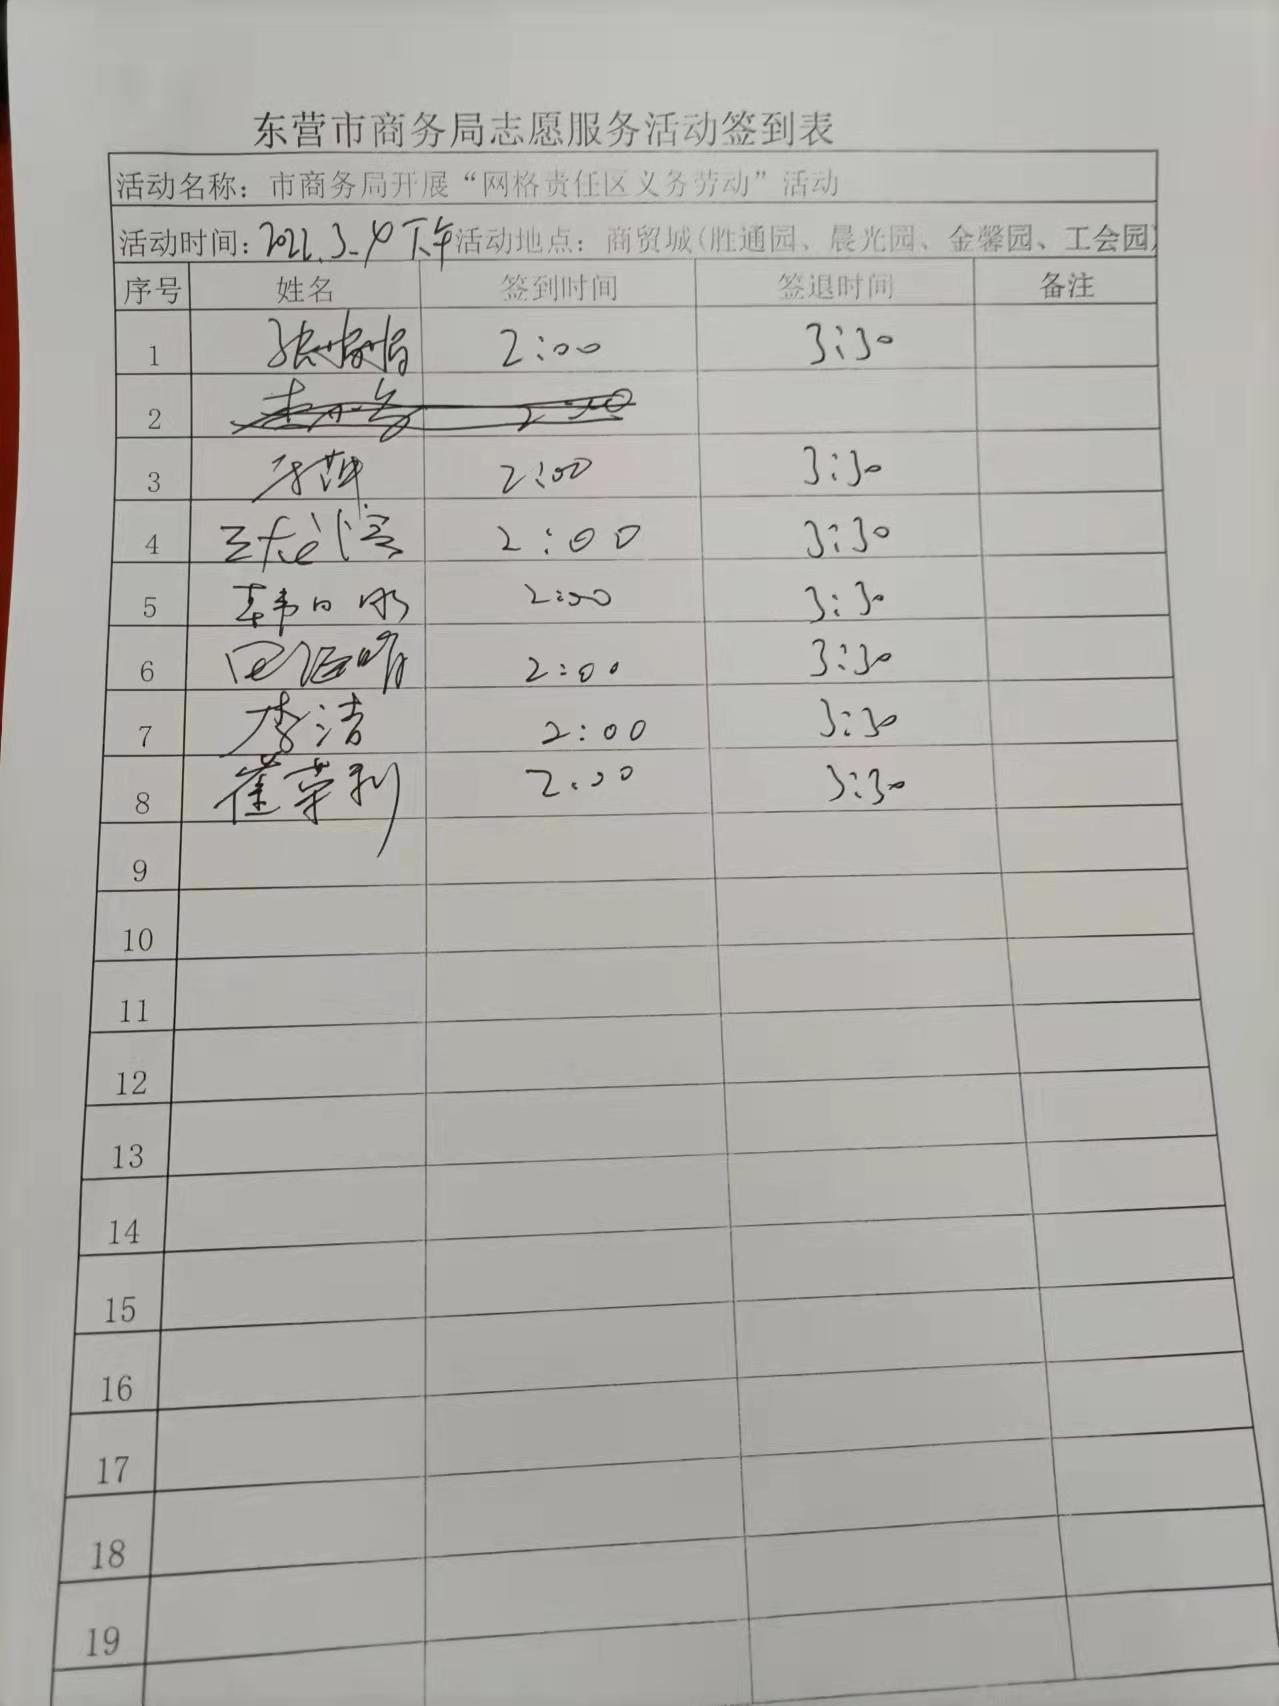 东营市商务局志愿服务活动签到表
活动名称：市商务局开展“网格责任区义务劳动”活动
活动时间：2022.3.4下午 活动地点：商贸城(胜通园、晨光园、金馨园、工会园)
序号 姓名 签到时间 签退时间 备注
1 2:00 3:30
2 2:00
3 2:00 3:30
4 2:00 3:30
5 韩日明 2:00 3:30
6 2:00 3:30
7 李洁 2:00 3:30
8 崔荣利 2:00 3:30
9
10
11
12
13
14
15
16
17
18
19